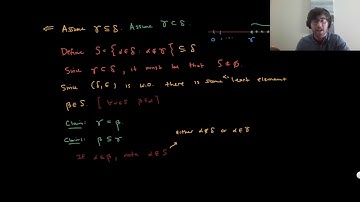 ⇐ Assume γ ⊆ δ. Assume γ ⊂ δ.
0 γ δ
Define S = {α ∈ δ : α ∉ γ} ⊆ δ
Since γ ⊂ δ, it must be that S ≠ ∅.
Since (δ, ∈) is w.o. there is some least element
β ∈ S. [ ∀α∈S β ≤ α ]
Claim: γ = β
Claim: β ⊆ γ
either α ∉ δ or α ∈ γ
If α ∈ β, note α ∉ S